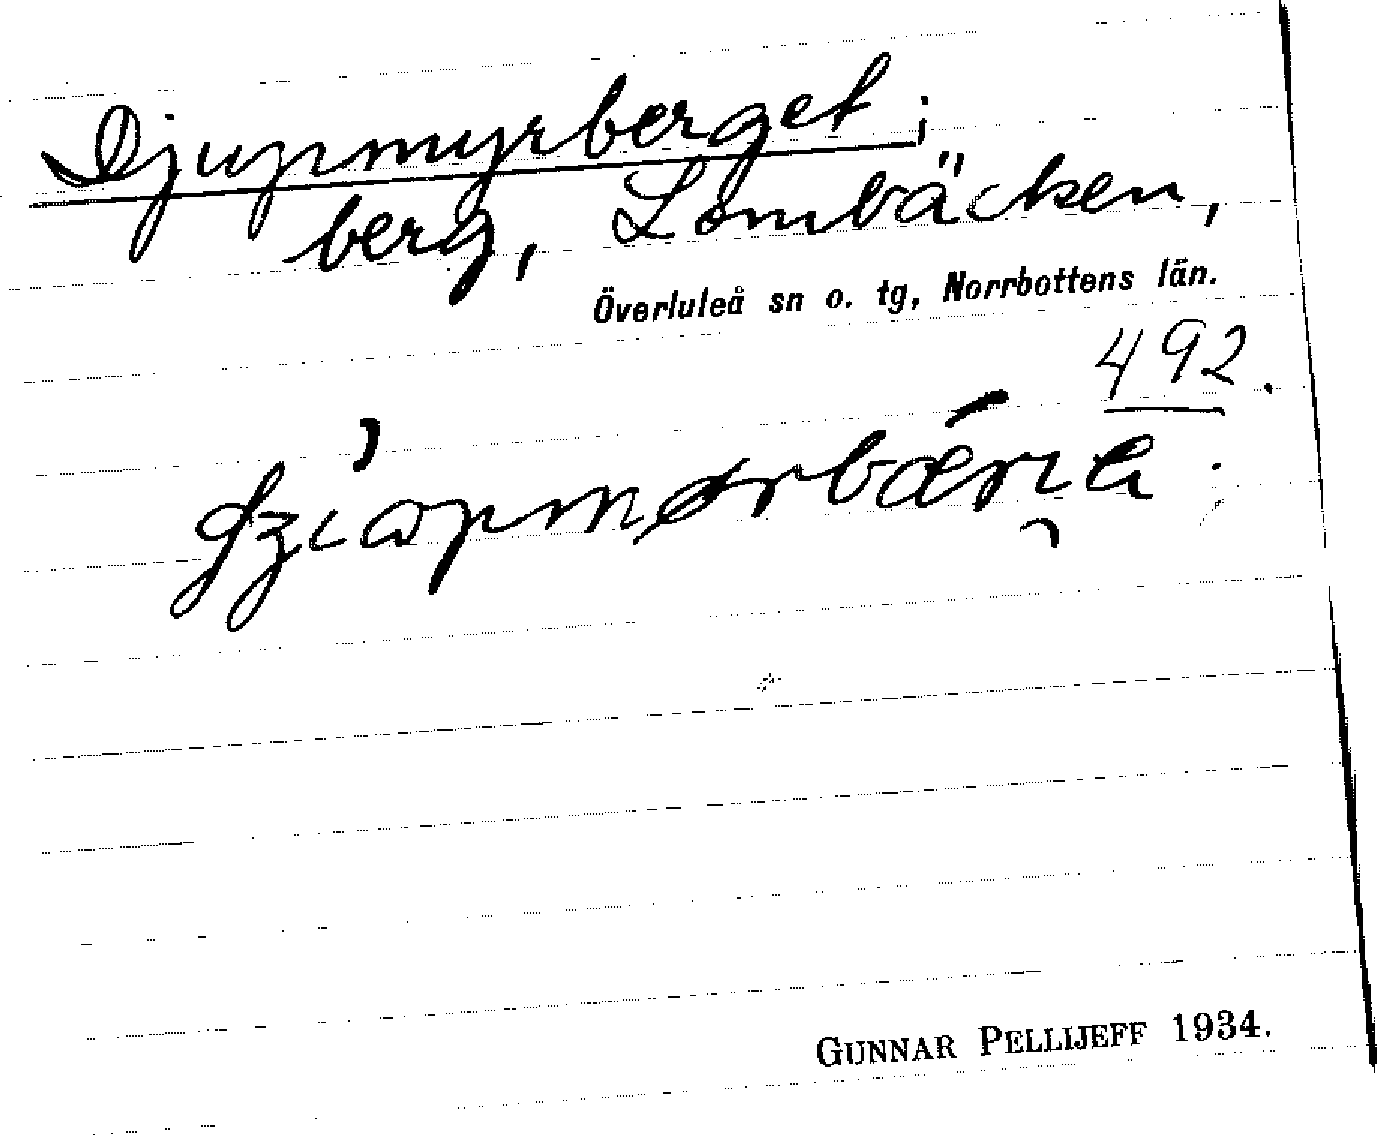 Djupmyrberget;
berg, Lombäcken,
Överluleå sn o. tg, Norrbottens län.
492.
GUNNAR PELLIJEFF 1934.